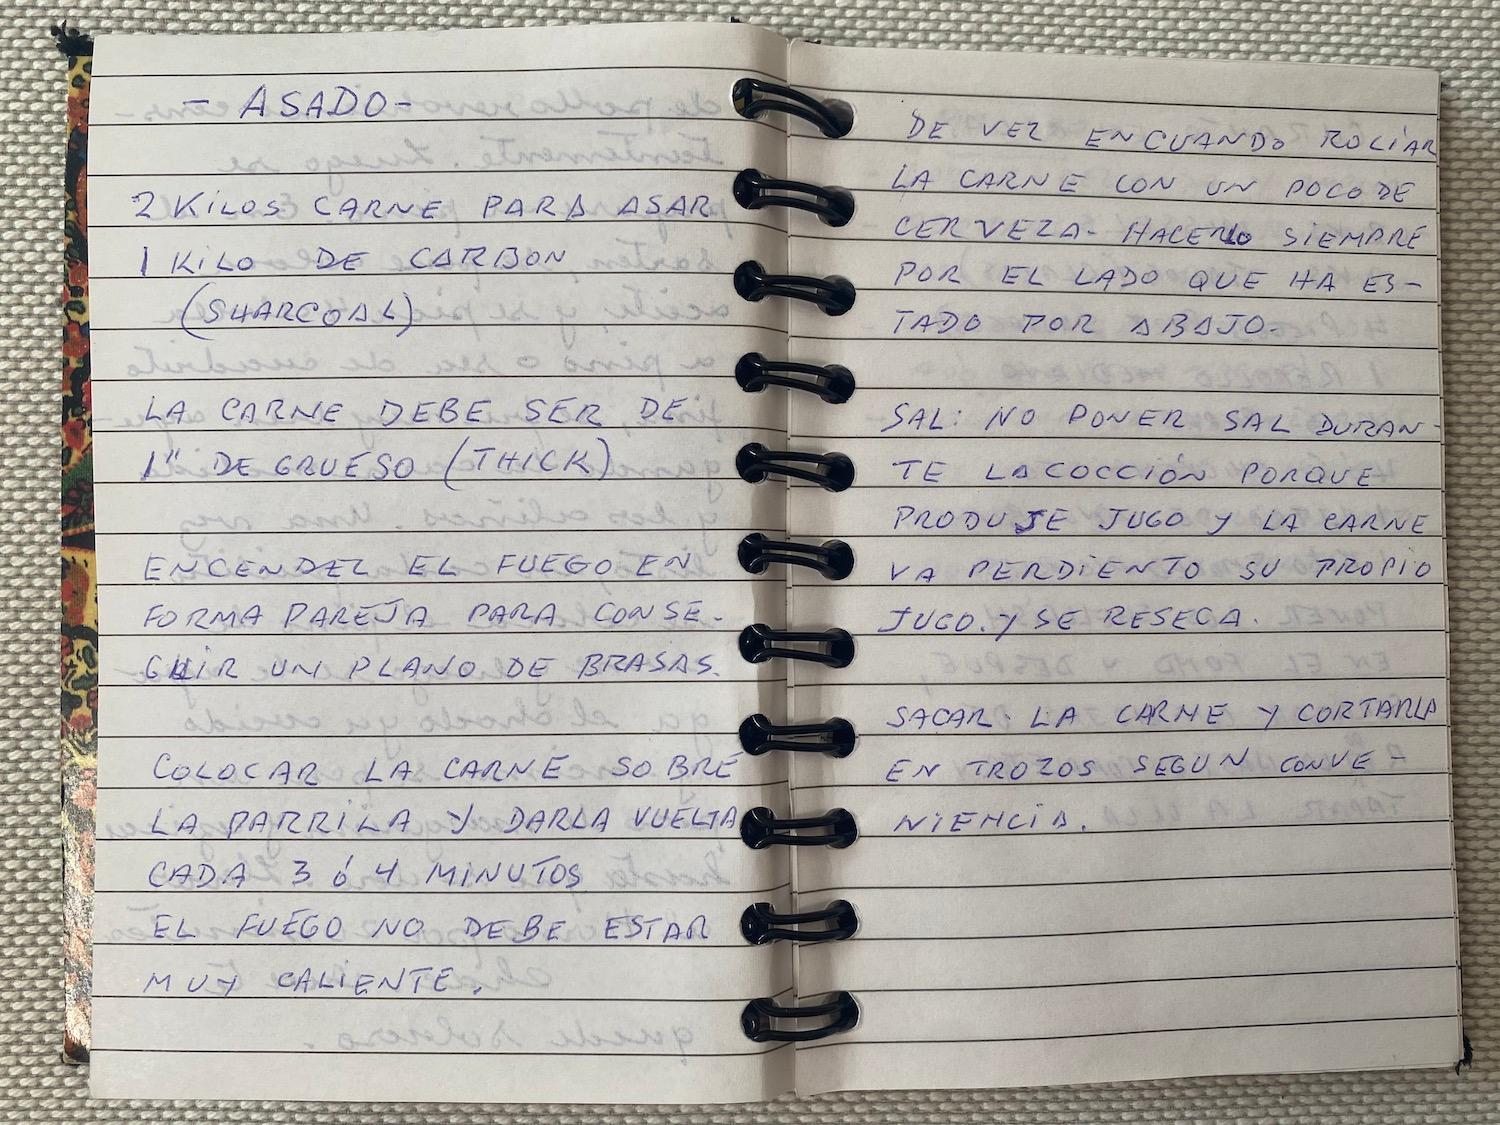 - ASADO-
2 KILOS CARNE PARA ASAR
1 KILO DE CARBON
(SHARCOAL)
LA CARNE DEBE SER DE
1" DE GRUESO (THICK)
ENCENDEL EL FUEGO EN
FORMA PAREJA PARA CONSE-
GUIR UN PLANO DE BRASAS.
COLOCAR LA CARNE SOBRE
LA PARRILA Y DARLA VUELTA
CADA 3 ó 4 MINUTOS
EL FUEGO NO DEBE ESTAR
MUY CALIENTE.
DE VEZ EN CUANDO ROCIAR
LA CARNE CON UN POCO DE
CERVEZA- HACERLO SIEMPRE
POR EL LADO QUE HA ES-
TADO POR ABAJO-
SAL: NO PONER SAL DURAN-
TE LA COCCIÓN PORQUE
PRODUJE JUGO Y LA CARNE
VA PERDIENTO SU PROPIO
JUGO. Y SE RESECA.
SACAR LA CARNE Y CORTARLA
EN TROZOS SEGUN CONVE-
NIENCIA.